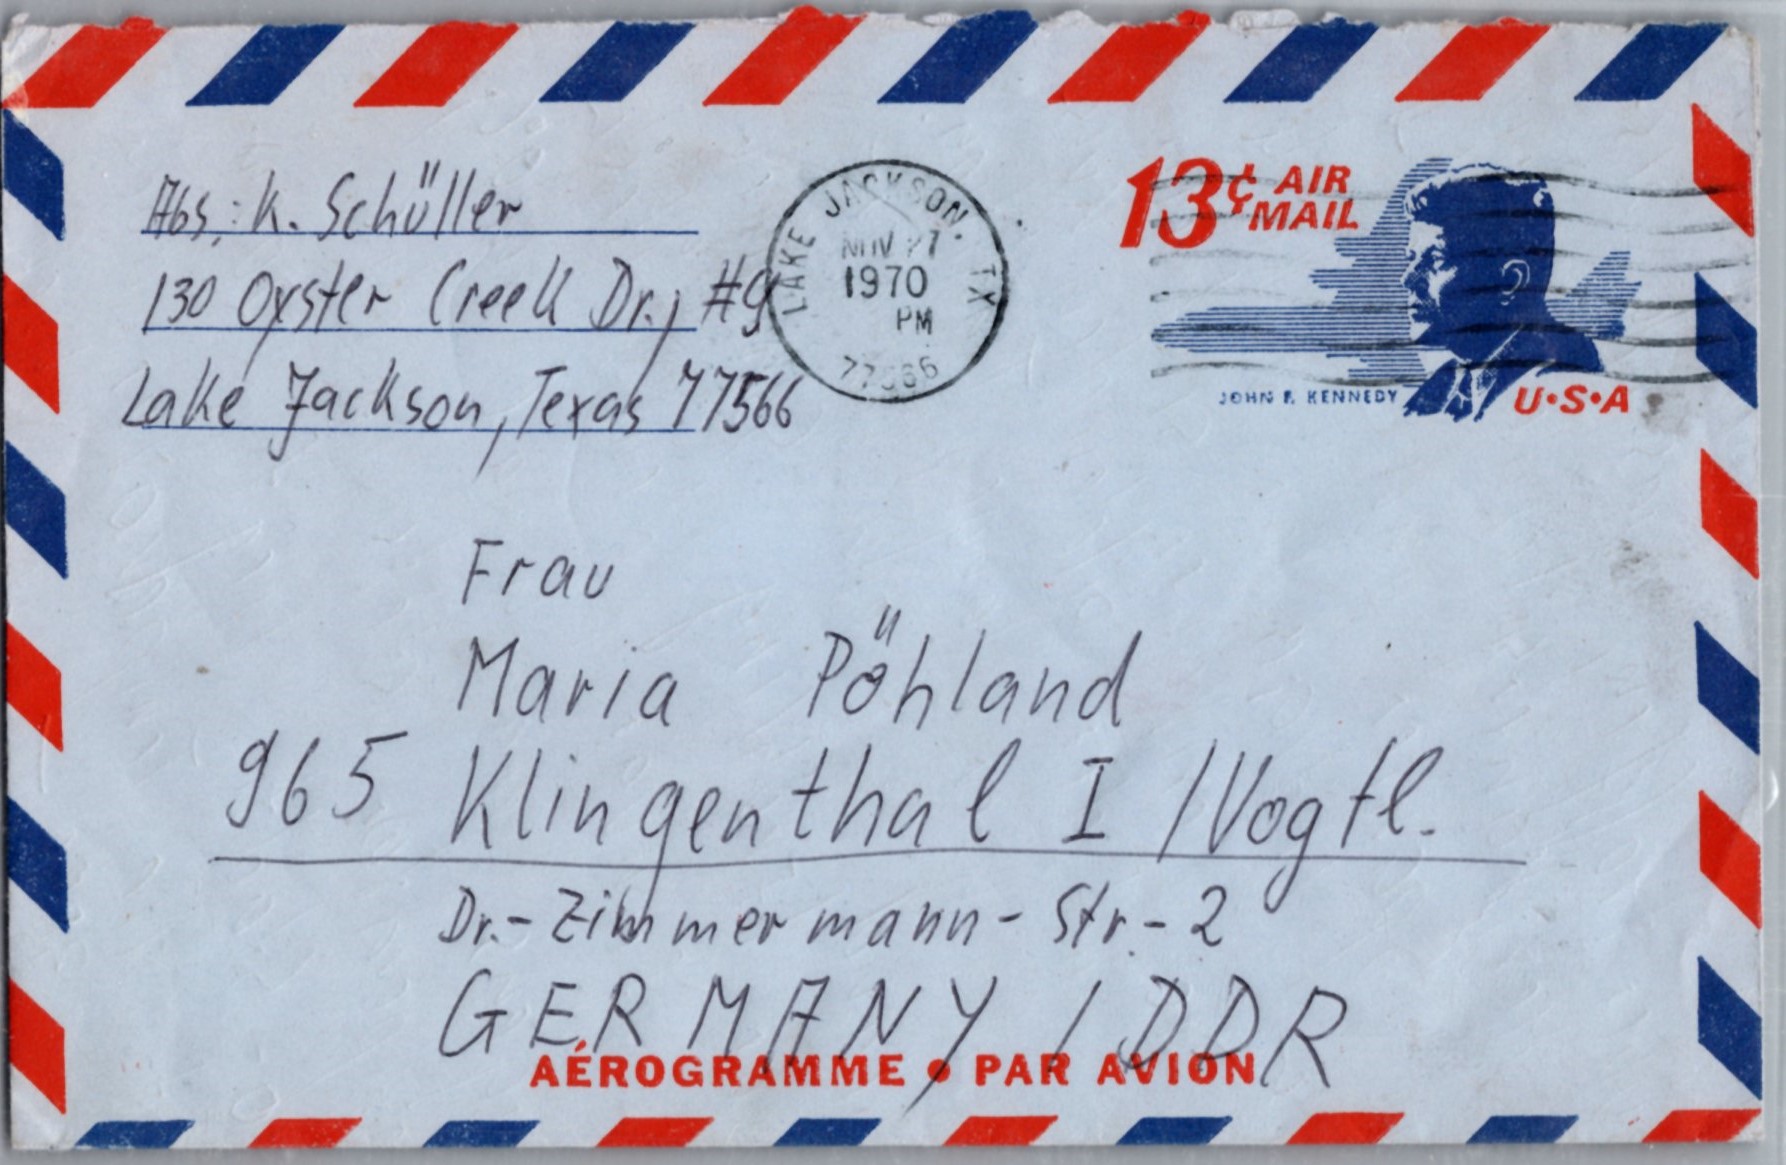 Abs.: K. Schüller
130 Oyster Creek Dr., #9
Lake Jackson, Texas 77566
LAKE JACKSON, TX
NOV 27
1970
PM
77566
13¢ AIR MAIL
JOHN F. KENNEDY
U•S•A
Frau
Maria Pöhland
965 Klingenthal I /Vogtl.
Dr.-Zimmermann-Str.-2
GERMANY / DDR
AÉROGRAMME • PAR AVION